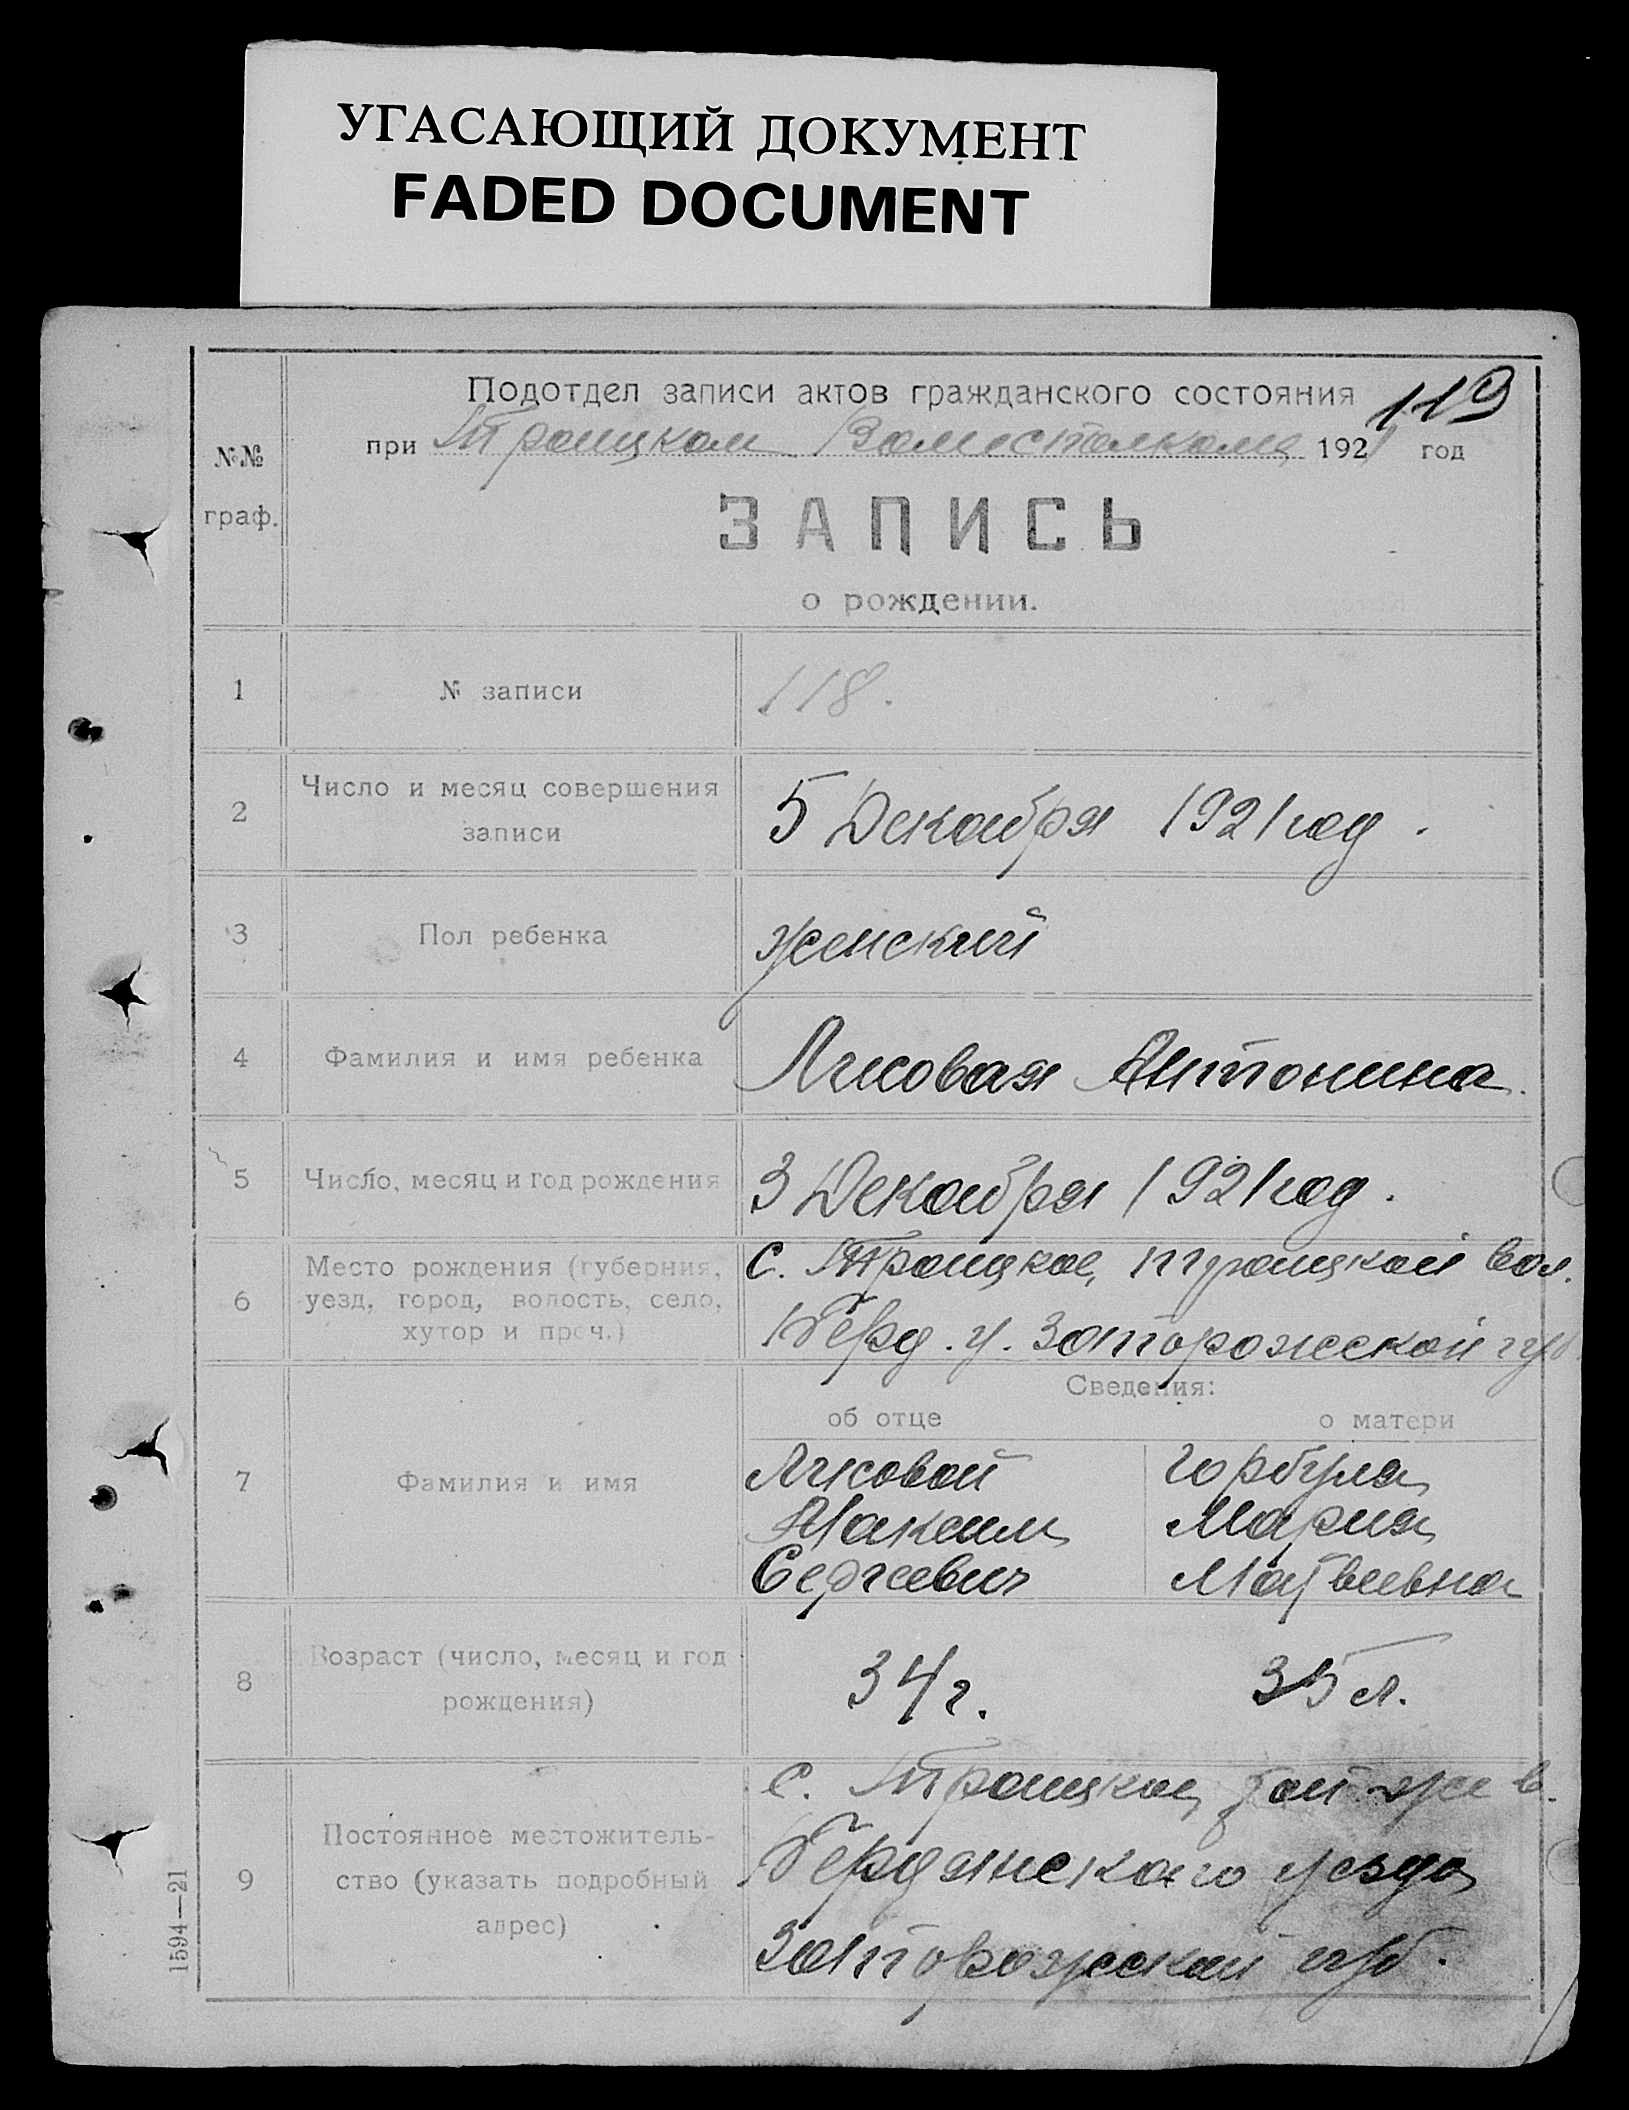 УГАСАЮЩИЙ ДОКУМЕНТ
FADED DOCUMENT
119
Подотдел записи актов гражданского состояния
при Троицком Волисполкоме 1921 год
№№
граф.
ЗАПИСЬ
о рождении.
1 № записи 118.
2 Число и месяц совершения
записи
5 Декабря 1921 год.
3 Пол ребенка женский
4 Фамилия и имя ребенка Лисовая Антонина.
5 Число, месяц и год рождения 3 Декабря 1921 год.
6 Место рождения (губерния,
уезд, город, волость, село,
хутор и проч.)
с. Троицкое, Троицкой вол.
Берд. у. Запорожской губ
Сведения:
об отце о матери
7 Фамилия и имя
Лисовой Горбуля
Максим Мария
Сергеевич Матвеевна
8 Возраст (число, месяц и год
рождения)
34 г. 35 л.
9 Постоянное местожитель-
ство (указать подробный
адрес)
с. Троицкое, той же в.
Бердянского уезда
Запорожской губ.
1594—21